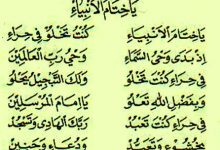 يَاخِتَامَ الْأَنْبِيَاءِ
يَاخِتَامَ الْأَنْبِيَاءِ كُنْتَ تَخْلُوْ فِيْ حِرَاءِ
إِذْ بَدَى وَحْيُ السَّمَاءِ وَحْيُ رَبِّ الْعَالَمِيْنَ
فِيْ حِرَاءِ كُنْتَ تَخْلُوْ وَلَكَ التَّبْجِيْلُ يَحْلُوْ
وَبِفَضْلِ اللهِ تَعْلُوْ يَاإِمَامَ الْمُرْسَلِيْنَ
فِيْ حِرَاءِ كُنْتَ تَعْبُدْ رَبَّكَ الْهَادِيْ وَتَسْجُدْ
وَدُعَاءٍ وَحَنِيْنَ